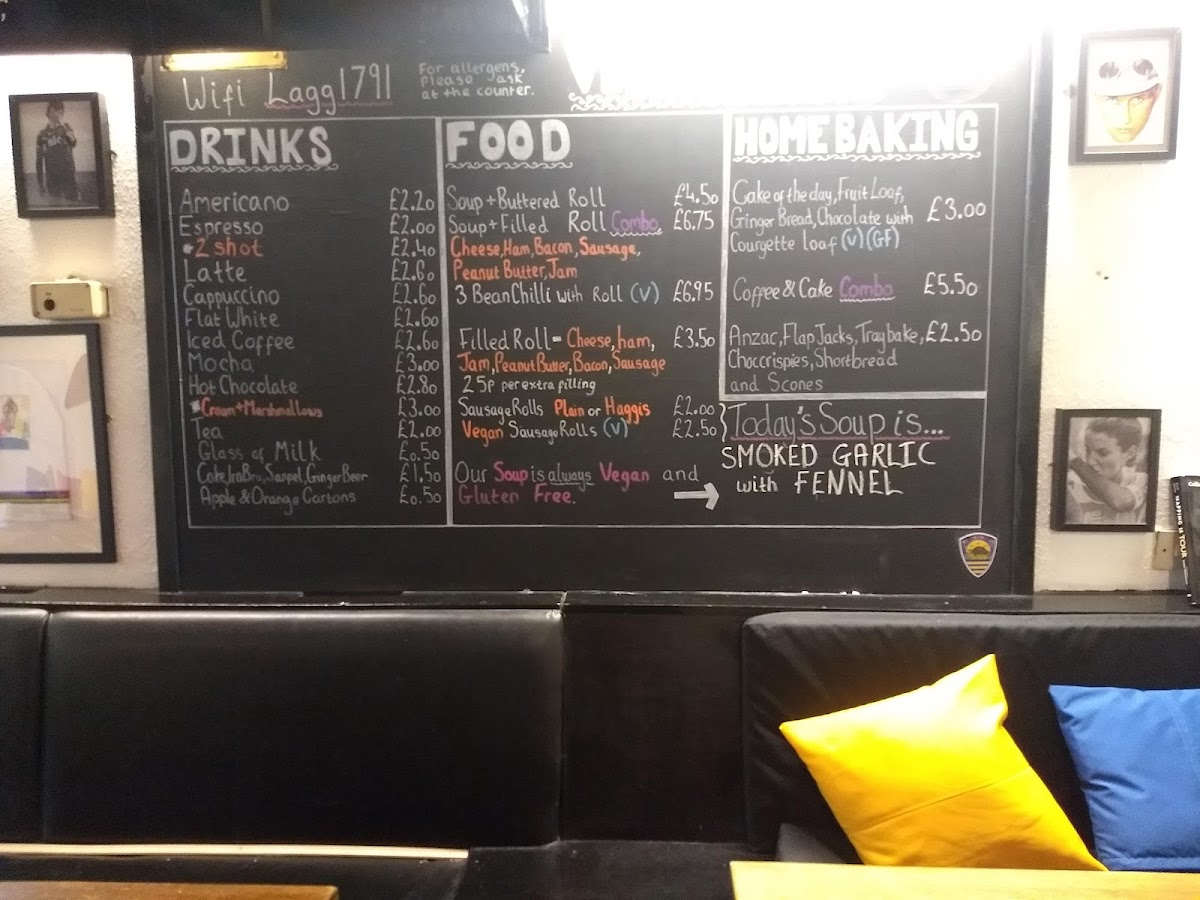 Wifi Lagg1791
For allergens,
please ask
at the counter.
DRINKS
Americano £2.20
Espresso £2.00
*2 shot £2.40
Latte £2.60
Cappuccino £2.60
Flat White £2.60
Iced Coffee £2.60
Mocha £3.00
Hot Chocolate £2.80
*Cream+Marshmallows £3.00
Tea £2.00
Glass of Milk £0.50
Coke, Irn Bru, Sanpel, Ginger Beer £1.50
Apple & Orange Cartons £0.50
FOOD
Soup + Buttered Roll £4.50
Soup + Filled Roll Combo £6.75
Cheese, Ham, Bacon, Sausage,
Peanut Butter, Jam
3 Bean Chilli with Roll (V) £6.95
Filled Roll = Cheese, ham, £3.50
Jam, Peanut Butter, Bacon, Sausage
25p per extra filling
Sausage Rolls Plain or Haggis £2.00
Vegan Sausage Rolls (V) £2.50
Our Soup is always Vegan and
Gluten Free.
HOME BAKING
Cake of the day, Fruit Loaf,
Ginger Bread, Chocolate with £3.00
Courgette loaf (V) (GF)
Coffee & Cake Combo £5.50
Anzac, Flap Jacks, Traybake, £2.50
Choccrispies, Shortbread
and Scones
Today's Soup is...
SMOKED GARLIC
with FENNEL